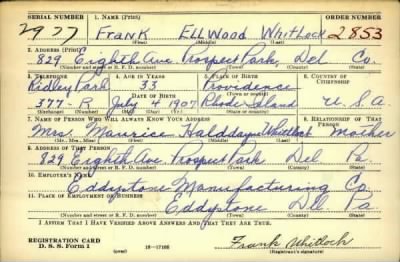 SERIAL NUMBER 1. NAME (Print) ORDER NUMBER
2977 FRANK ELLWOOD WHITLOCK 2853
(First) (Middle) (Last)
2. ADDRESS (Print)
829 Eighth Ave. Prospect Park, Del Co.
(Number and street or R. F. D. number) (Town) (County) (State)
3. TELEPHONE 4. AGE IN YEARS 5. PLACE OF BIRTH 6. COUNTRY OF CITIZENSHIP
Ridley Park 33 Providence
DATE OF BIRTH
377-R July 4 1907 Rhode Island U.S.A.
7. NAME OF PERSON WHO WILL ALWAYS KNOW YOUR ADDRESS 8. RELATIONSHIP OF THAT PERSON
Mrs. Maurice Whitlock Mother
(Mr., Mrs., Miss) (First) (Middle) (Last)
9. ADDRESS OF THAT PERSON
829 Eighth Ave. Prospect Park Del Pa.
(Number and street or R. F. D. number) (Town) (County) (State)
10. EMPLOYER'S NAME
Eddystone Manufacturing Co.
11. PLACE OF EMPLOYMENT OR BUSINESS
Eddystone Del Pa
(Number and street or R. F. D. number) (Town) (County) (State)
I AFFIRM THAT I HAVE VERIFIED ABOVE ANSWERS AND THAT THEY ARE TRUE.
REGISTRATION CARD
D. S. S. Form 1 (over) 16-17105 Frank Whitlock
(Registrant's signature)